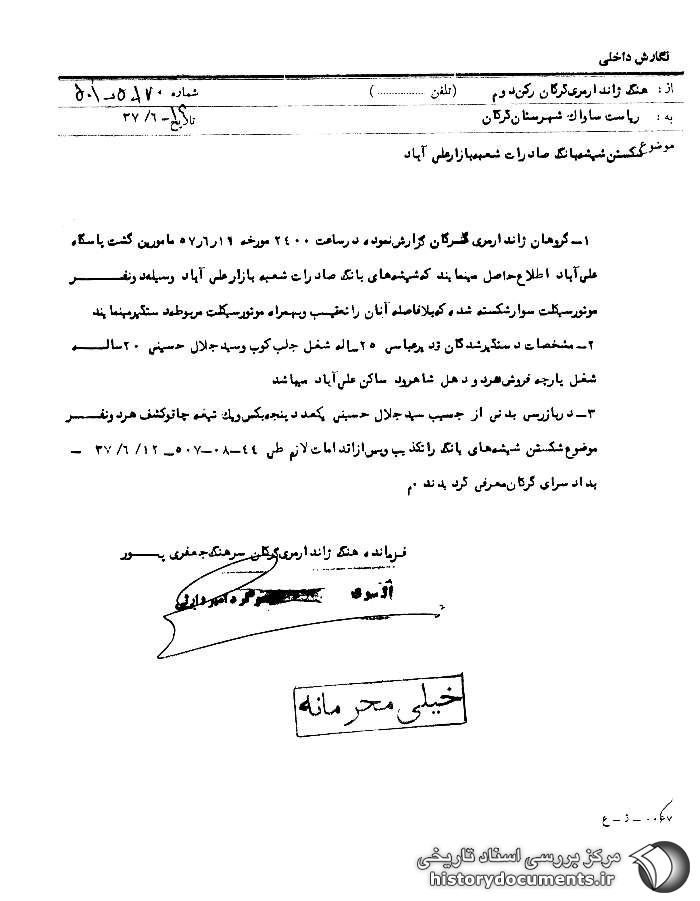 نگارش داخلی
از: هنگ ژاندارمری گرگان رکن دوم (تلفن ..............) شماره
به: ریاست ساواک شهرستان گرگان تاریخ ۳۷/۶/
موضوع: شکستن شیشه بانک صادرات شعبه بازار علی آباد
۱ـ گروهان ژاندارمری گرگان گزارش نموده در ساعت ۲۴۰۰ مورخه ۱۲ر۶ر۵۷ مامورین گشت پاسگاه
علی آباد اطلاع حاصل مینمایند که شیشه های بانک صادرات شعبه بازار علی آباد وسیله دو نفـــر
موتورسیکلت سوار شکسته شده که بلافاصله آنان را تعقیب و بهمراه موتورسیکلت مربوطه دستگیر مینمایند
۲ـ مشخصات دستگیرشدگان عباسی ۲۵ ساله شغل جلب کوب و سید جلال حسینی ۲۰ سالـــه
شغل پارچه فروش هر دو اهل شاهرود ساکن علی آباد میباشد
۳ـ در بازرسی بدنی از جیب سید جلال حسینی یکعدد پنجه بکس و یک تیغه چاقو کشف هر دو نفـــر
موضوع شکستن شیشه های بانک را تکذیب و پس از اقدامات لازم طی ۴۴-۰۸-۵۰۷ـ ۱۲/۶/۳۷ ـ
بدادسرای گرگان معرفی گردیدند م
فرمانده هنگ ژاندارمری گرگان سرهنگ جعفری پـــور
از سوی
خیلی محرمانه
ـ ژ ـ ع
مرکز بررسی اسناد تاریخی
historydocuments.ir